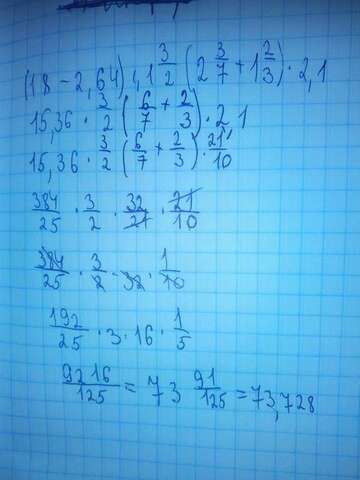 (18 - 2,64) · 1 3/2 (2 3/7 + 1 2/3) · 2,1
15,36 · 3/2 (6/7 + 2/3) · 2 1
15,36 · 3/2 (6/7 + 2/3) · 21/10
384/25 · 3/2 · 32/21 · 21/10
384/25 · 3/2 · 32 · 1/10
192/25 · 3 · 16 · 1/5
9216/125 = 73 91/125 = 73,728